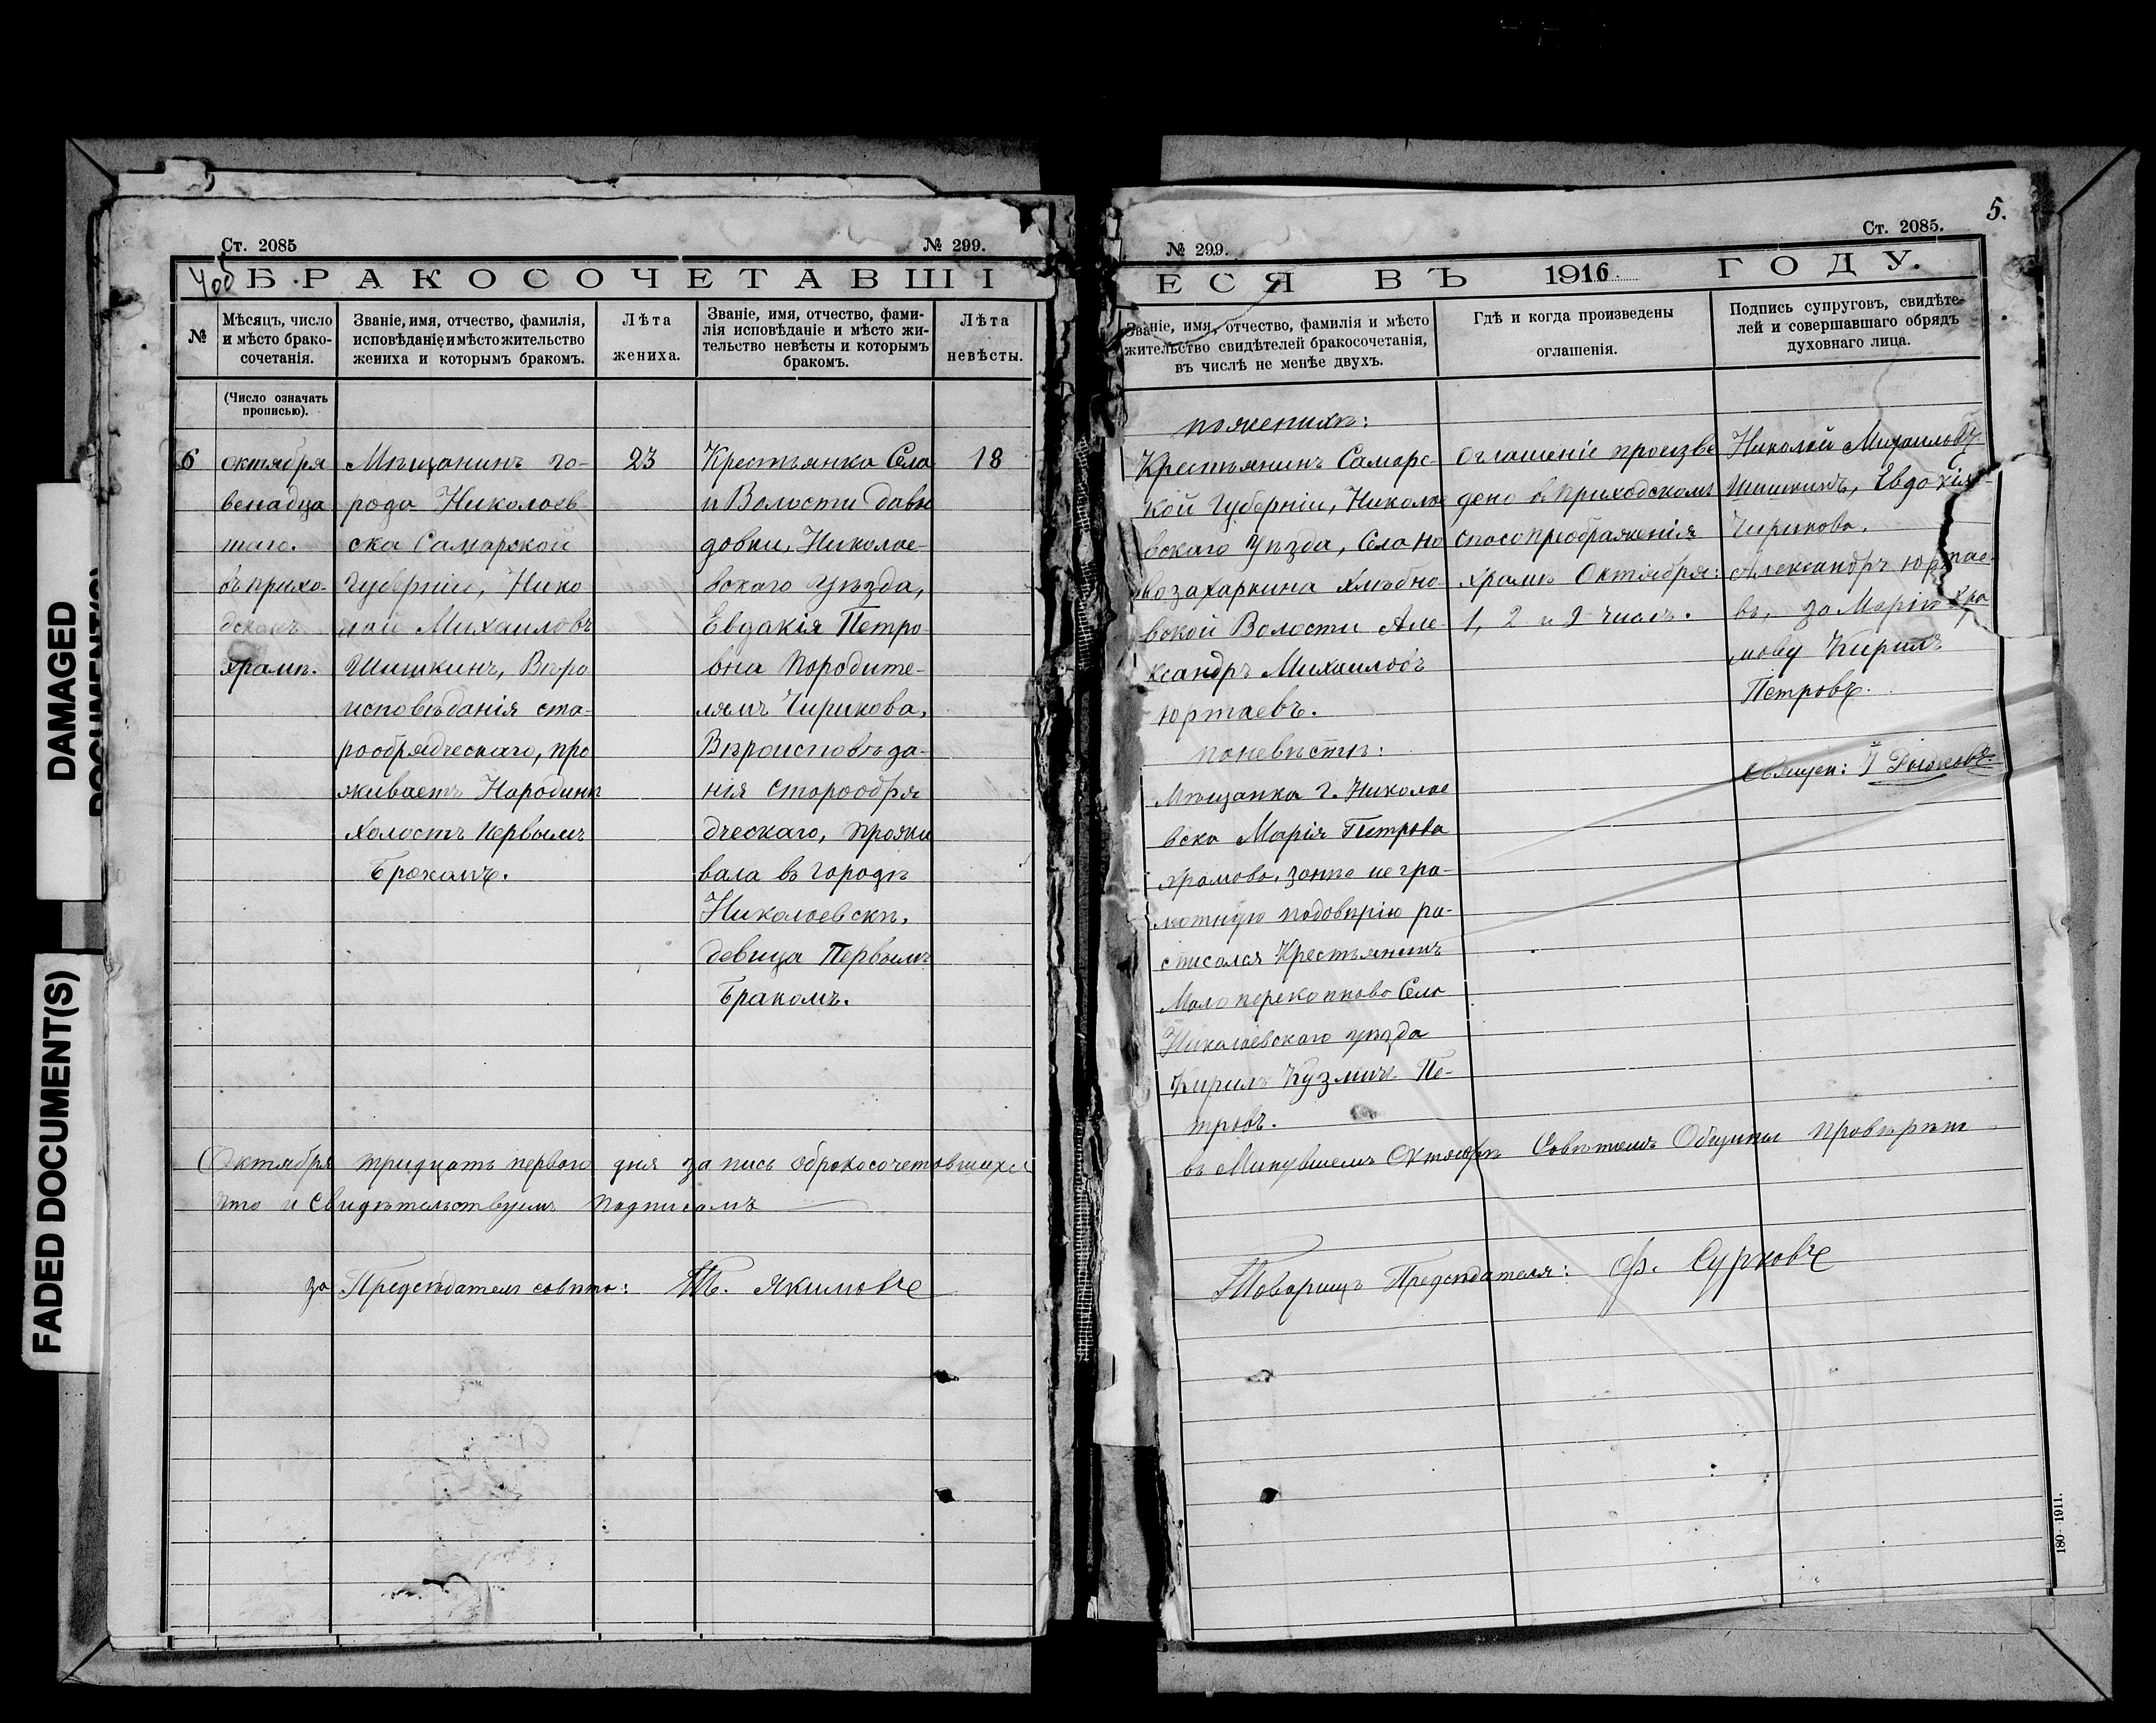 DAMAGED
DOCUMENT(S)
FADED DOCUMENT(S)
Ст. 2085
№ 299.
БРАКОСОЧЕТАВШІ
№
Мѣсяцъ, число
и мѣсто брако-
сочетанія.
Званіе, имя, отчество, фамилія,
исповѣданіе и мѣсто жительство
жениха и которымъ бракомъ.
Лѣта
жениха.
Званіе, имя, отчество, фами-
лія исповѣданіе и мѣсто жи-
тельство невѣсты и которымъ
бракомъ.
Лѣта
невѣсты.
(Число означать
прописью).
6
октября
венадца
таго.
въ прихо-
дскомъ
храмѣ.
Мѣщанинъ го-
рода Николаев
ска Самарской
Губерніи, Нико
лай Михаиловъ
Шишкинъ, Вѣро
исповѣданія ста-
рообрядческаго, про
живаетъ Народинѣ
Холостъ первымъ
Бракомъ.
23
Крестьянка Села
и Волости Давы
довки, Николае-
вскаго Уѣзда,
Евдакія Петро
вна Породите-
лямъ Чирикова,
Вѣроисповѣда-
нія Старообря
дческаго, прожи
вала въ городѣ
Николаевскѣ,
девица Первымъ
Бракомъ.
18
Октября тридцать первого дня запись обракосочетовшихся
что и Свидѣтельствуемъ подписомъ
за Председатель совѣта: Т. Якимовъ
5.
№ 299.
Ст. 2085.
ЕСЯ ВЪ 1916 ГОДУ.
Званіе, имя, отчество, фамилія и мѣсто
жительство свидѣтелей бракосочетанія,
въ числѣ не менѣе двухъ.
Гдѣ и когда произведены
оглашенія.
Подпись супруговъ, свидѣте-
лей и совершавшаго обрядъ
духовнаго лица.
пожениху:
Крестьянинъ Самарс-
кой Губерніи, Никола
евскаго Уѣзда, Села Но
возахаркина Хлѣбно-
вской Волости Але-
ксандръ Михаиловъ
Юртаевъ.
поневѣстѣ:
Мѣщанка г. Николае
вска Марія Петрова
Храмова, занее негра-
мотную подовѣрію ра-
списался Крестьянинъ
Мало перекопново Села
Николаевскаго уѣзда
Кирилъ Кузмичъ Пе-
тровъ.
Оглашеніе произве
дено въ Приходскомъ
Спасопреображенія
храмѣ Октября:
1, 2 и 9 числъ.
Николай Михаиловъ
Шишкинъ, Евдокія
Чирикова.
Александръ Юртае-
въ, за Марію Хра
мову Кирилъ
Петровъ.
Священ: І Рыжковъ
въ Минувшемъ Октябрѣ Совѣтомъ Общины провѣрена
Товарищъ Председателя: Ф. Сурковъ
180—1911.